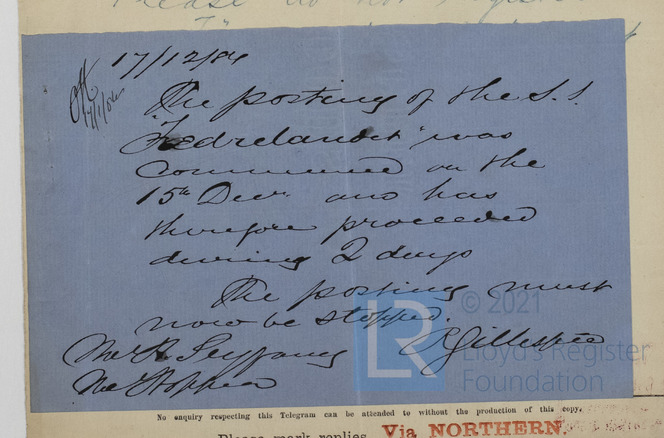 Please do not
17/12/84
The posting of the S.S.
"Fædrelandet" was
commenced on the
15th Decr and has
therefore proceeded
during 2 days
The posting must
now be stopped.
R Gillespie
Mr
LR © 2021
Lloyd's Register
Foundation
No enquiry respecting this Telegram can be attended to without the production of this copy.
Please mark replies Via NORTHERN.